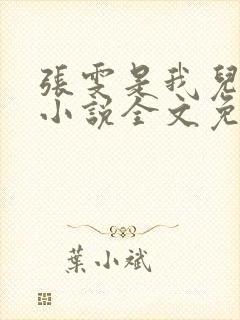 張雯是我兒
小說全文免
葉小斌